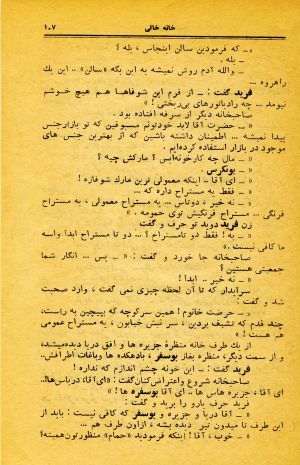 خانه خالی ۱۰۷
«ــ که فرمودین سالن اینجاس ، بله ؟
ــ بله .
ــ والله آدم روش نمیشه به این بگه «سالن» .. این یک
راهروه ...
فرید گفت : ــ از فرم این شوفاها هم هیچ خوشم
نیومد ... چه رادیاتورهای بی‌ریختی !»
صاحبخانه دیگر از سرفه افتاده بود .
«ــ حضرت آقا لابد خودتونم مسبوقین که تو بازار جنس
پیدا نمیشه ... اطمینان داشته باشین که از بهترین جنس های
موجود در بازار استفاده کرده‌ایم .
ــ مال چه کارخونه‌ایس ؟ مارکش چیه ؟
ــ یونگرس
ــ ای آقا .. اینکه معمولی ترین مارک شوفاژه !
ــ فقط یه مستراح داره که ...
ــ نه خیر ، دوتاس .. یه مستراح معمولی ، یه مستراح
فرنگی ... مستراح فرنگیش توی حمومه . »
زن فرید دوید تو حرف و گفت
«ــ به ! فقط دو تا مستراح ؟ ... دو تا مستراح ابداً واسه
ما کافی نیست .»
صاحبخانه جا خورد و گفت : «ــ پس ... انگار شما
جمعیتی هستین ؟
ــ نه خیر .. ابداً !»
سرایدار که تا آن لحظه چیزی نمی گفت ، وارد صحبت
شد و گفت :
«ــ حرضت خانوم ! همین سرکوچه که بپیچین به راست،
چند قدم که تشیف بردین ، سر نبش خیابون ، یه مستراح عمومی
هم هست !»
از یک طرف خانه منظرهٔ جزیره ها و افق دریا دیده میشد،
و از سمت دیگر، منظره بغاز بوسفر ، بادهکده ها وباغات اطرافش...
فرید گفت : «ــ این خونه چشم اندازم که نداره !
صاحبخانه شروع و اعتراض کنان گفت: «ای آقا، دریاس‌ها!..
ای آقا ، جزیره هاس ها .. ای آقا بوسفره ها !»
فرید حرف یارو را برید و گفت :
«ــ آقا دریا و جزیره و بوسفر که کافی نیست : باید از
این طرف تا میدون تیر دیده بشه ، ازاون طرف هم ...
ــ خوب ، آقا ! اینکه فرمودید «حمام» منظورتون همینه؟